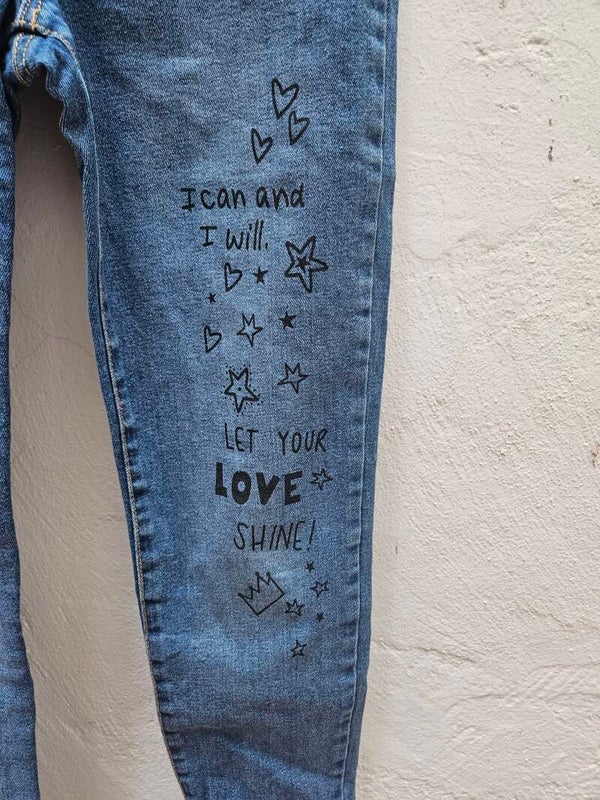 I can and
I will.
LET YOUR
LOVE
SHINE!